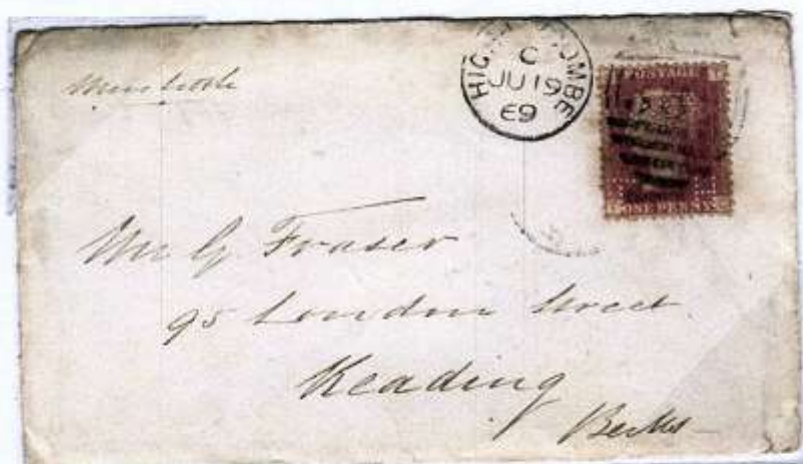 HIGH WYCOMBE
C
JU 19
69
POSTAGE
ONE PENNY
Mr G Fraser
95 London Street
Reading
Berks